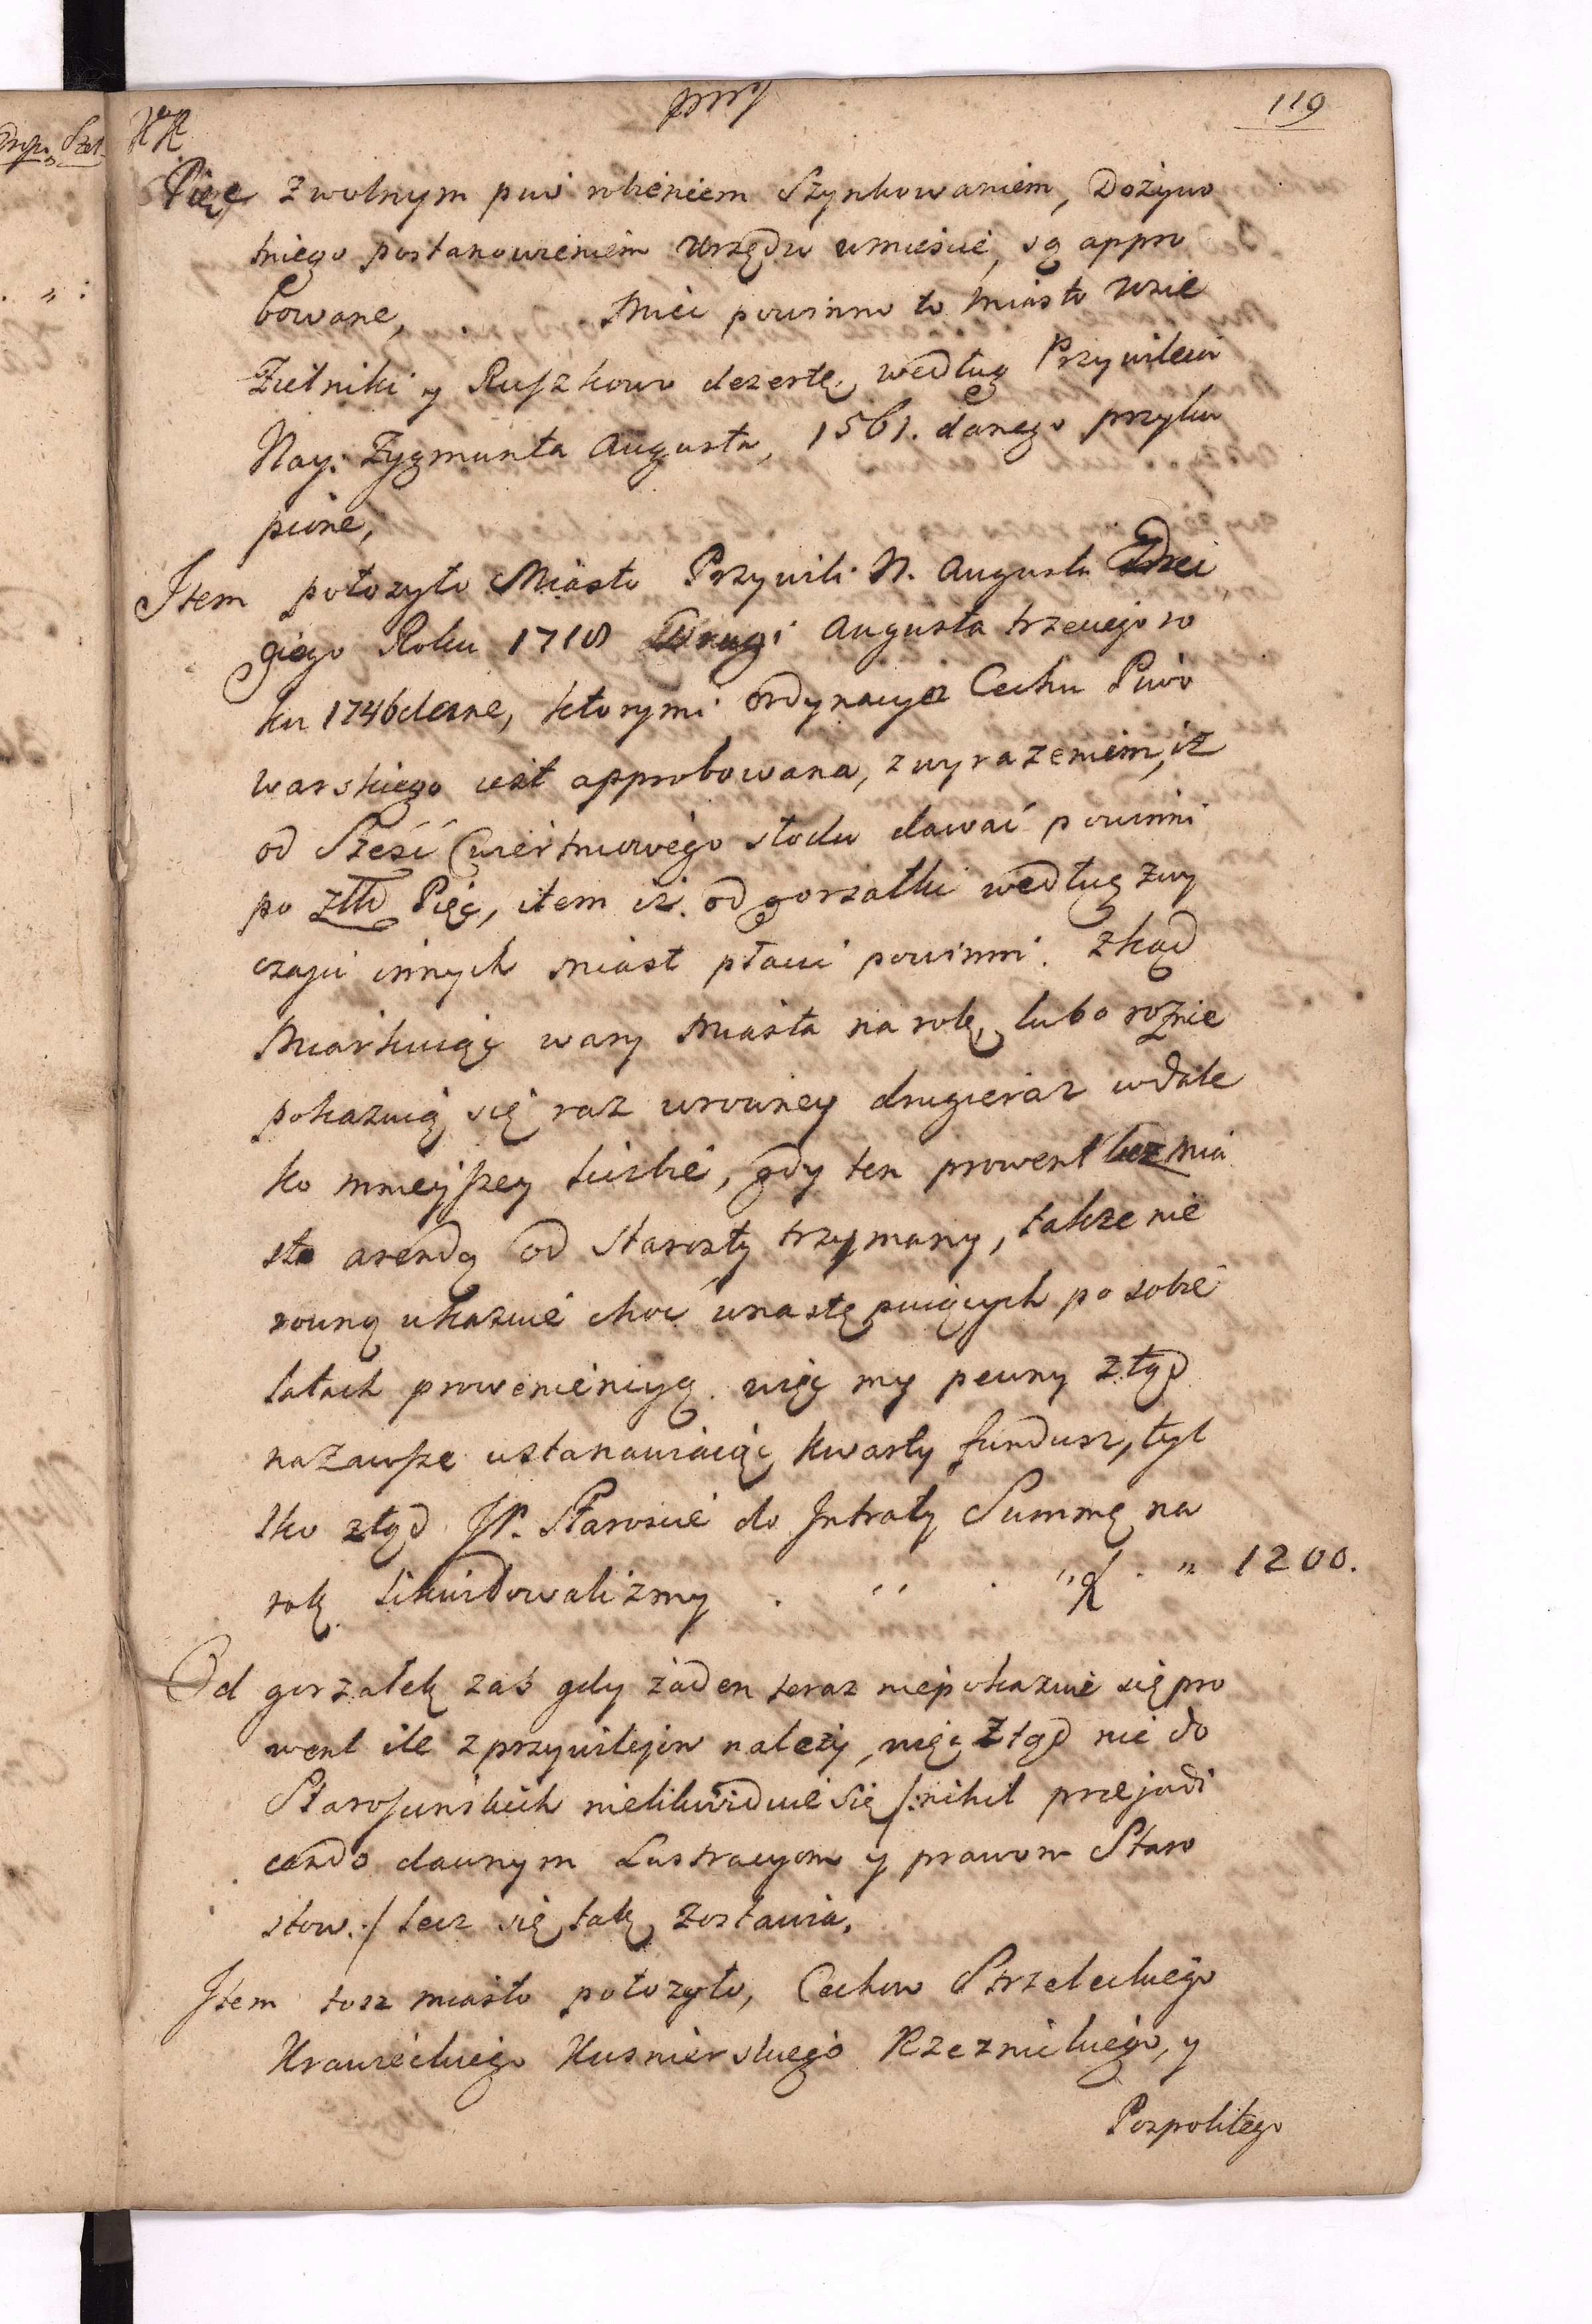 119
Pięc z wolnym piw robieniem Szynkowaniem, Dożywo
tniego postanowieniem Urzędu wmieście, są appro
bowane, Mieć powinno to Miasto Wsie
Zielniki y Ruszkowo dezertę, według Przywileiu
Nay: Zygmunta Augusta, 1561. danego przyku
pione,
Item położyło Miasto Przywili N. Augusta
giego Roku 1718 Drugi Augusta trzeciego ro
ku 1746 dane, ktorymi ordynacya Cechu Piwo
warskiego iest approbowana, z wyrazeniem, iz
od Sześć Cwiertniowego słodu dawać powinni
po Złłt Pięc, item iż od gorzałki według zwy
czaju innych miast płacić powinni. Zkąd
Miarkuiąc wary Miasta na rok, lubo roznie
pokazuią się raz wrowney drugi raz wdale
ko mnieyszey liczbie, gdy ten prowent bez mia
sto arendą od Starosty trzymany, takze nie
rowną ukazuie choć wnastępuiących po sobie
latach proweniencyą. więc my pewny ztąd
nazawsze ustanawiaiąc kwarty fundusz, tyl
ko ztąd JP. Staroscie do Intraty Summę na
rok likwidowalizmy . " . " " 1200.
Od gorzałek zaś gdy żaden teraz niepokazuie się pro
went ile z przywilejow należy, więc ztąd nic do
Starościnskich nielikwiduie się /: nihil praejudi
cando dawnym Lustracyom y prawom Staro
stow :/ lecz się tak zostawia,
Item tosz miasto położyło, Cechow Strzeleckiego
Krawieckiego Kusnierskiego Rzeznickiego, y
Pospolitego